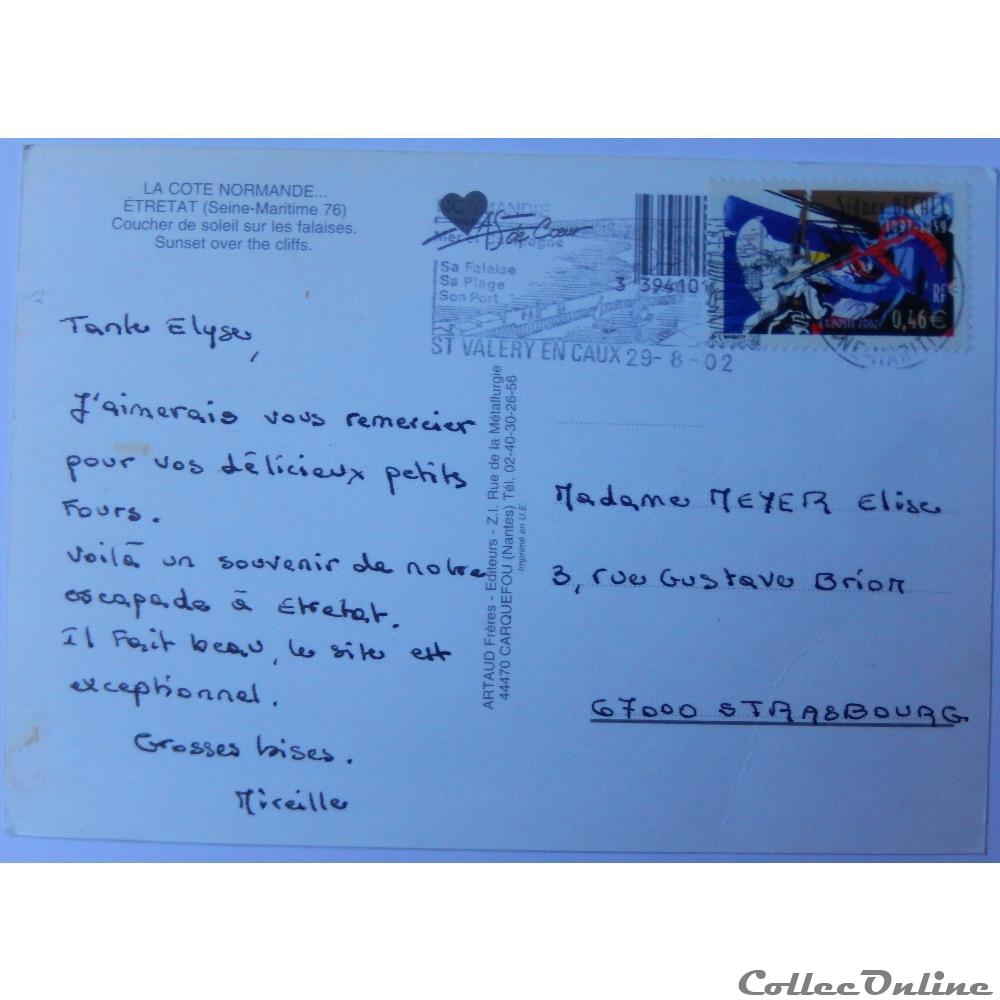 LA COTE NORMANDE...
ÉTRETAT (Seine-Maritime 76)
Coucher de soleil sur les falaises.
Sunset over the cliffs.
Tante Elyse,
J'aimerais vous remercier
pour vos délicieux petits
Fours.
Voilà un souvenir de notre
escapade à Etretat.
Il Fait beau, le site est
exceptionnel.
Grosses bises.
Mireille
ARTAUD Frères - Editeurs - Z.I. Rue de la Métallurgie
44470 CARQUEFOU (Nantes) Tél. 02-40-30-26-56
Imprimé en U.E.
AS de Cœur
Sa Falaise
Sa Plage
Son Port
ST VALERY EN CAUX 29-8-02
3 39410
Sidney BECHET
RF
0,46€
Madame MEYER Elise
3, rue Gustave Brion
67000 STRASBOURG
CollecOnline